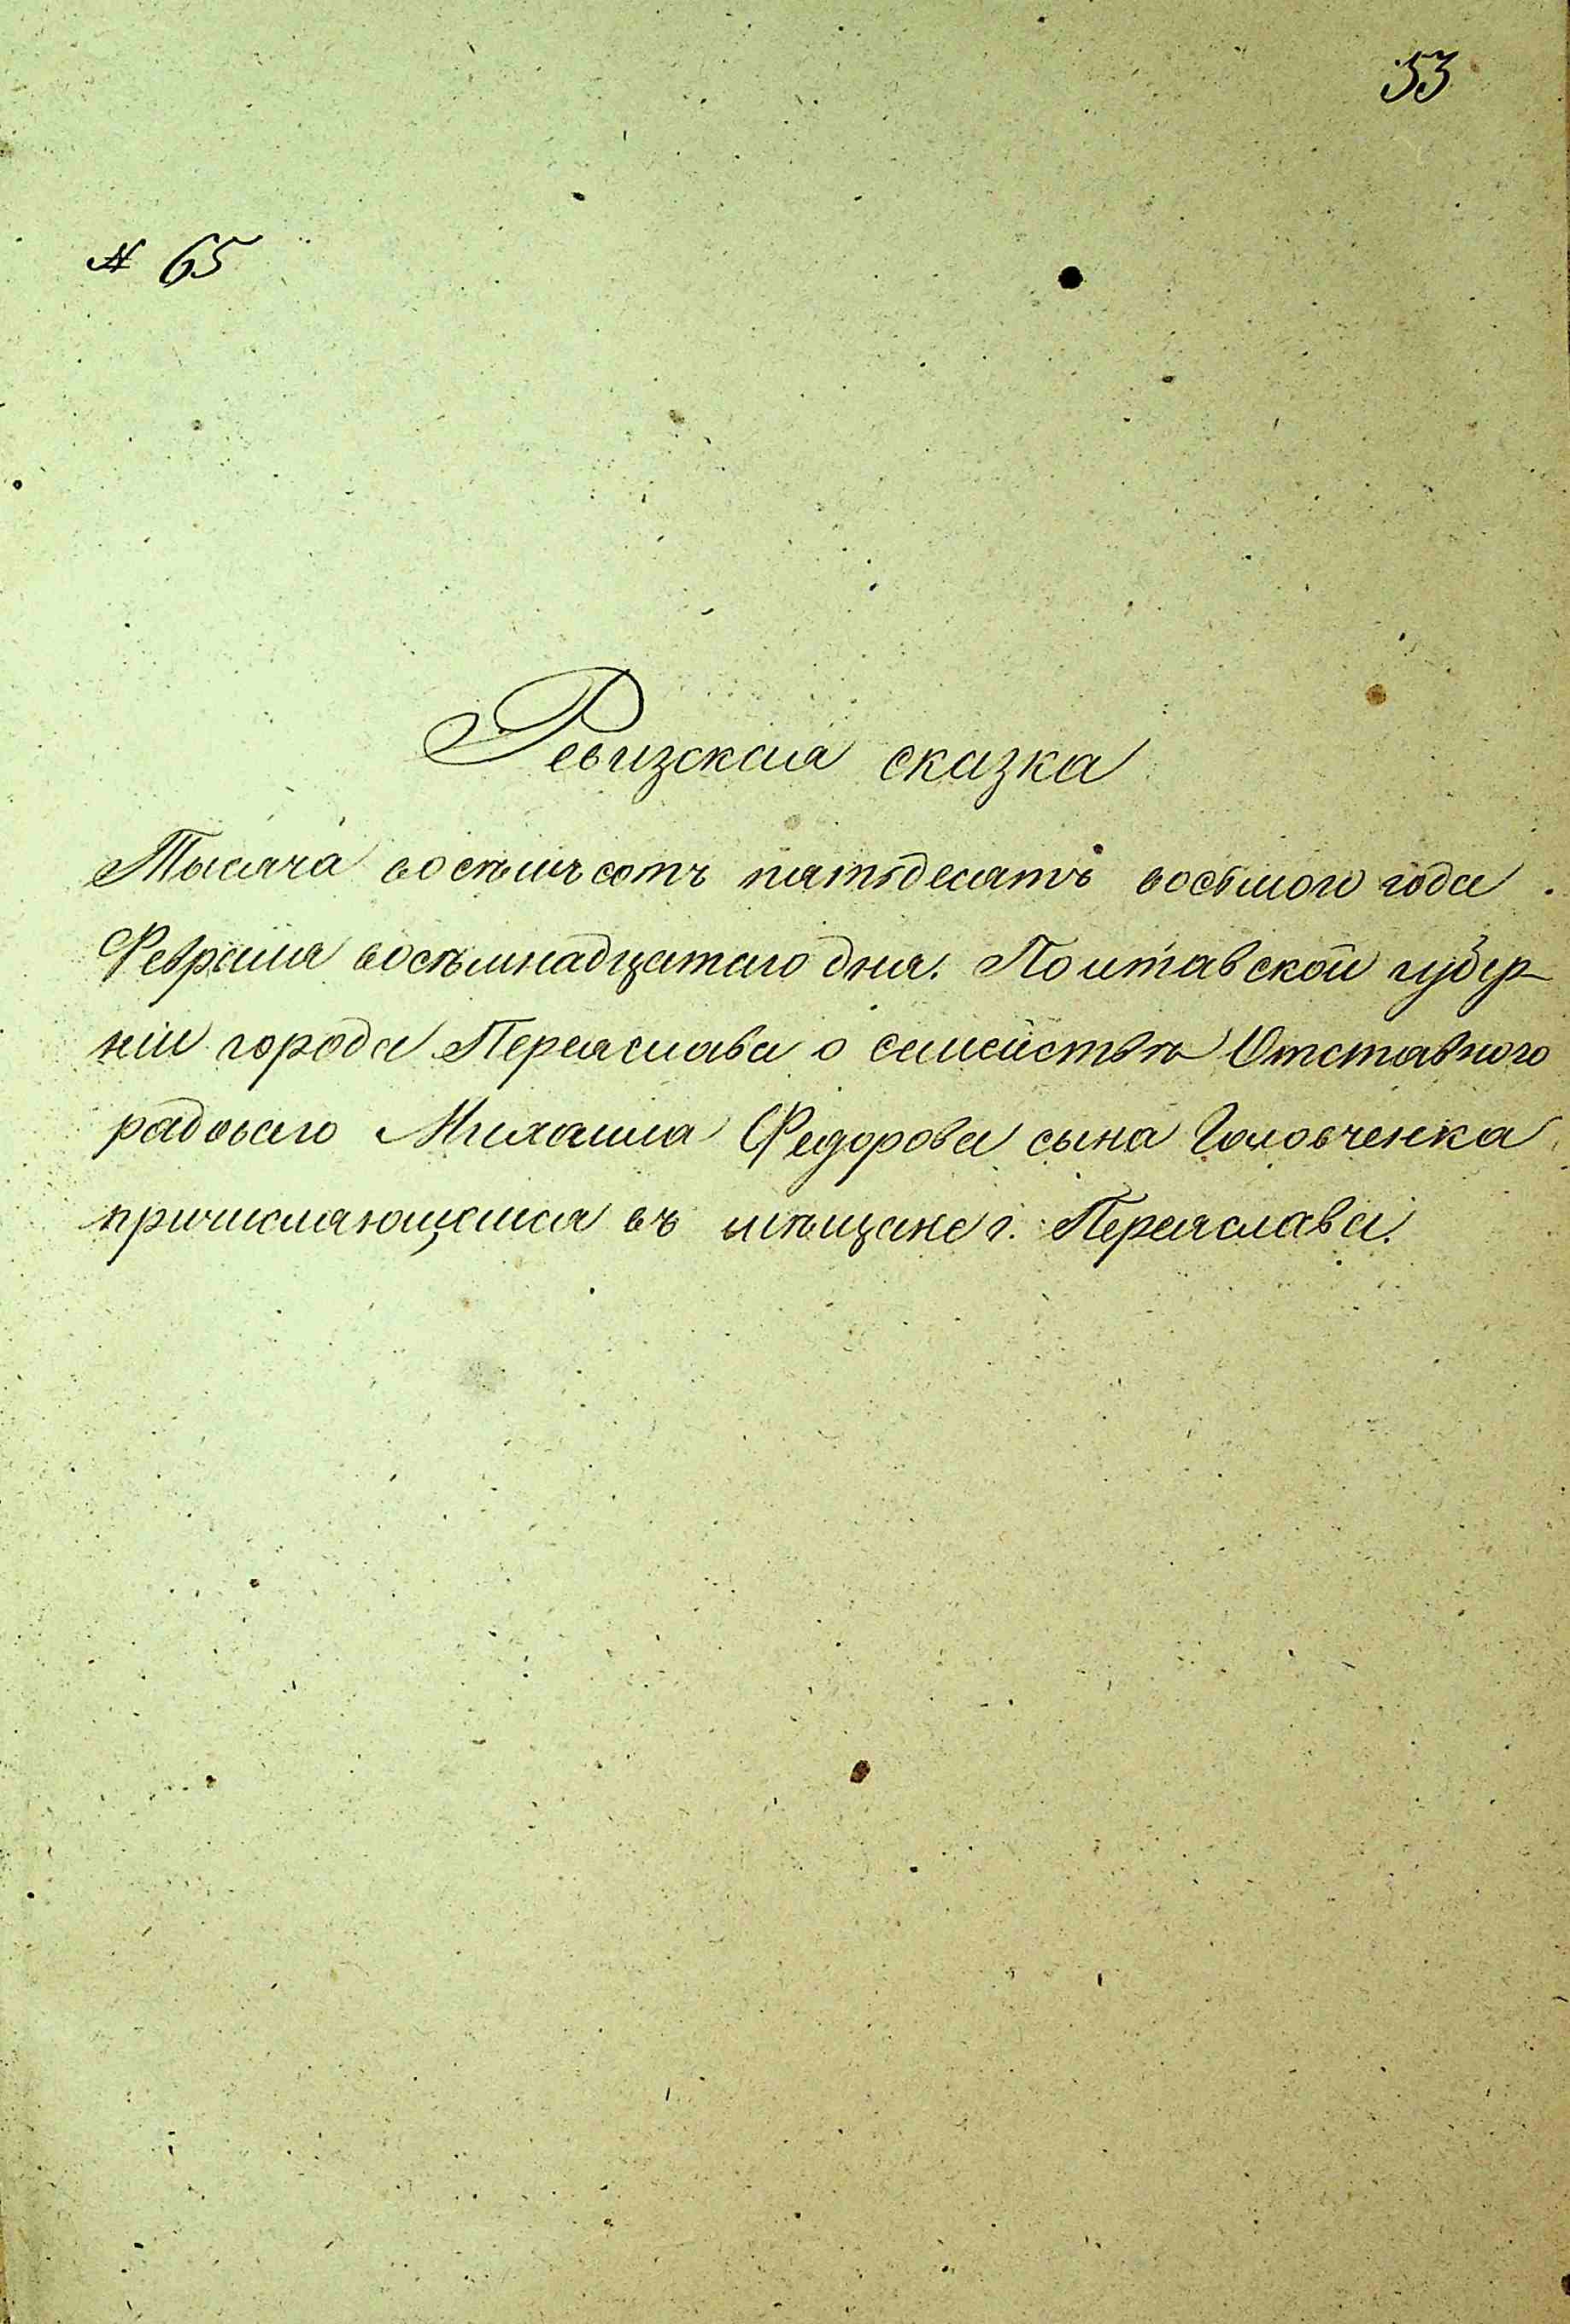 53
№ 65
Ревизская сказка
Тысяча восѣмьсотъ пятьдесятъ восьмого года
Февраля восѣмнадцатаго дня. Полтавской губер-
ніи города Переяслава о семействѣ Отставного
рядоваго Михаила Федорова сына Головченка
причисляющаяся въ мѣщане г. Переяслава.